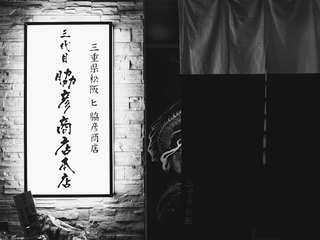 三重県松阪 ヒ 脇彦商店
三代目 脇彦商店本店